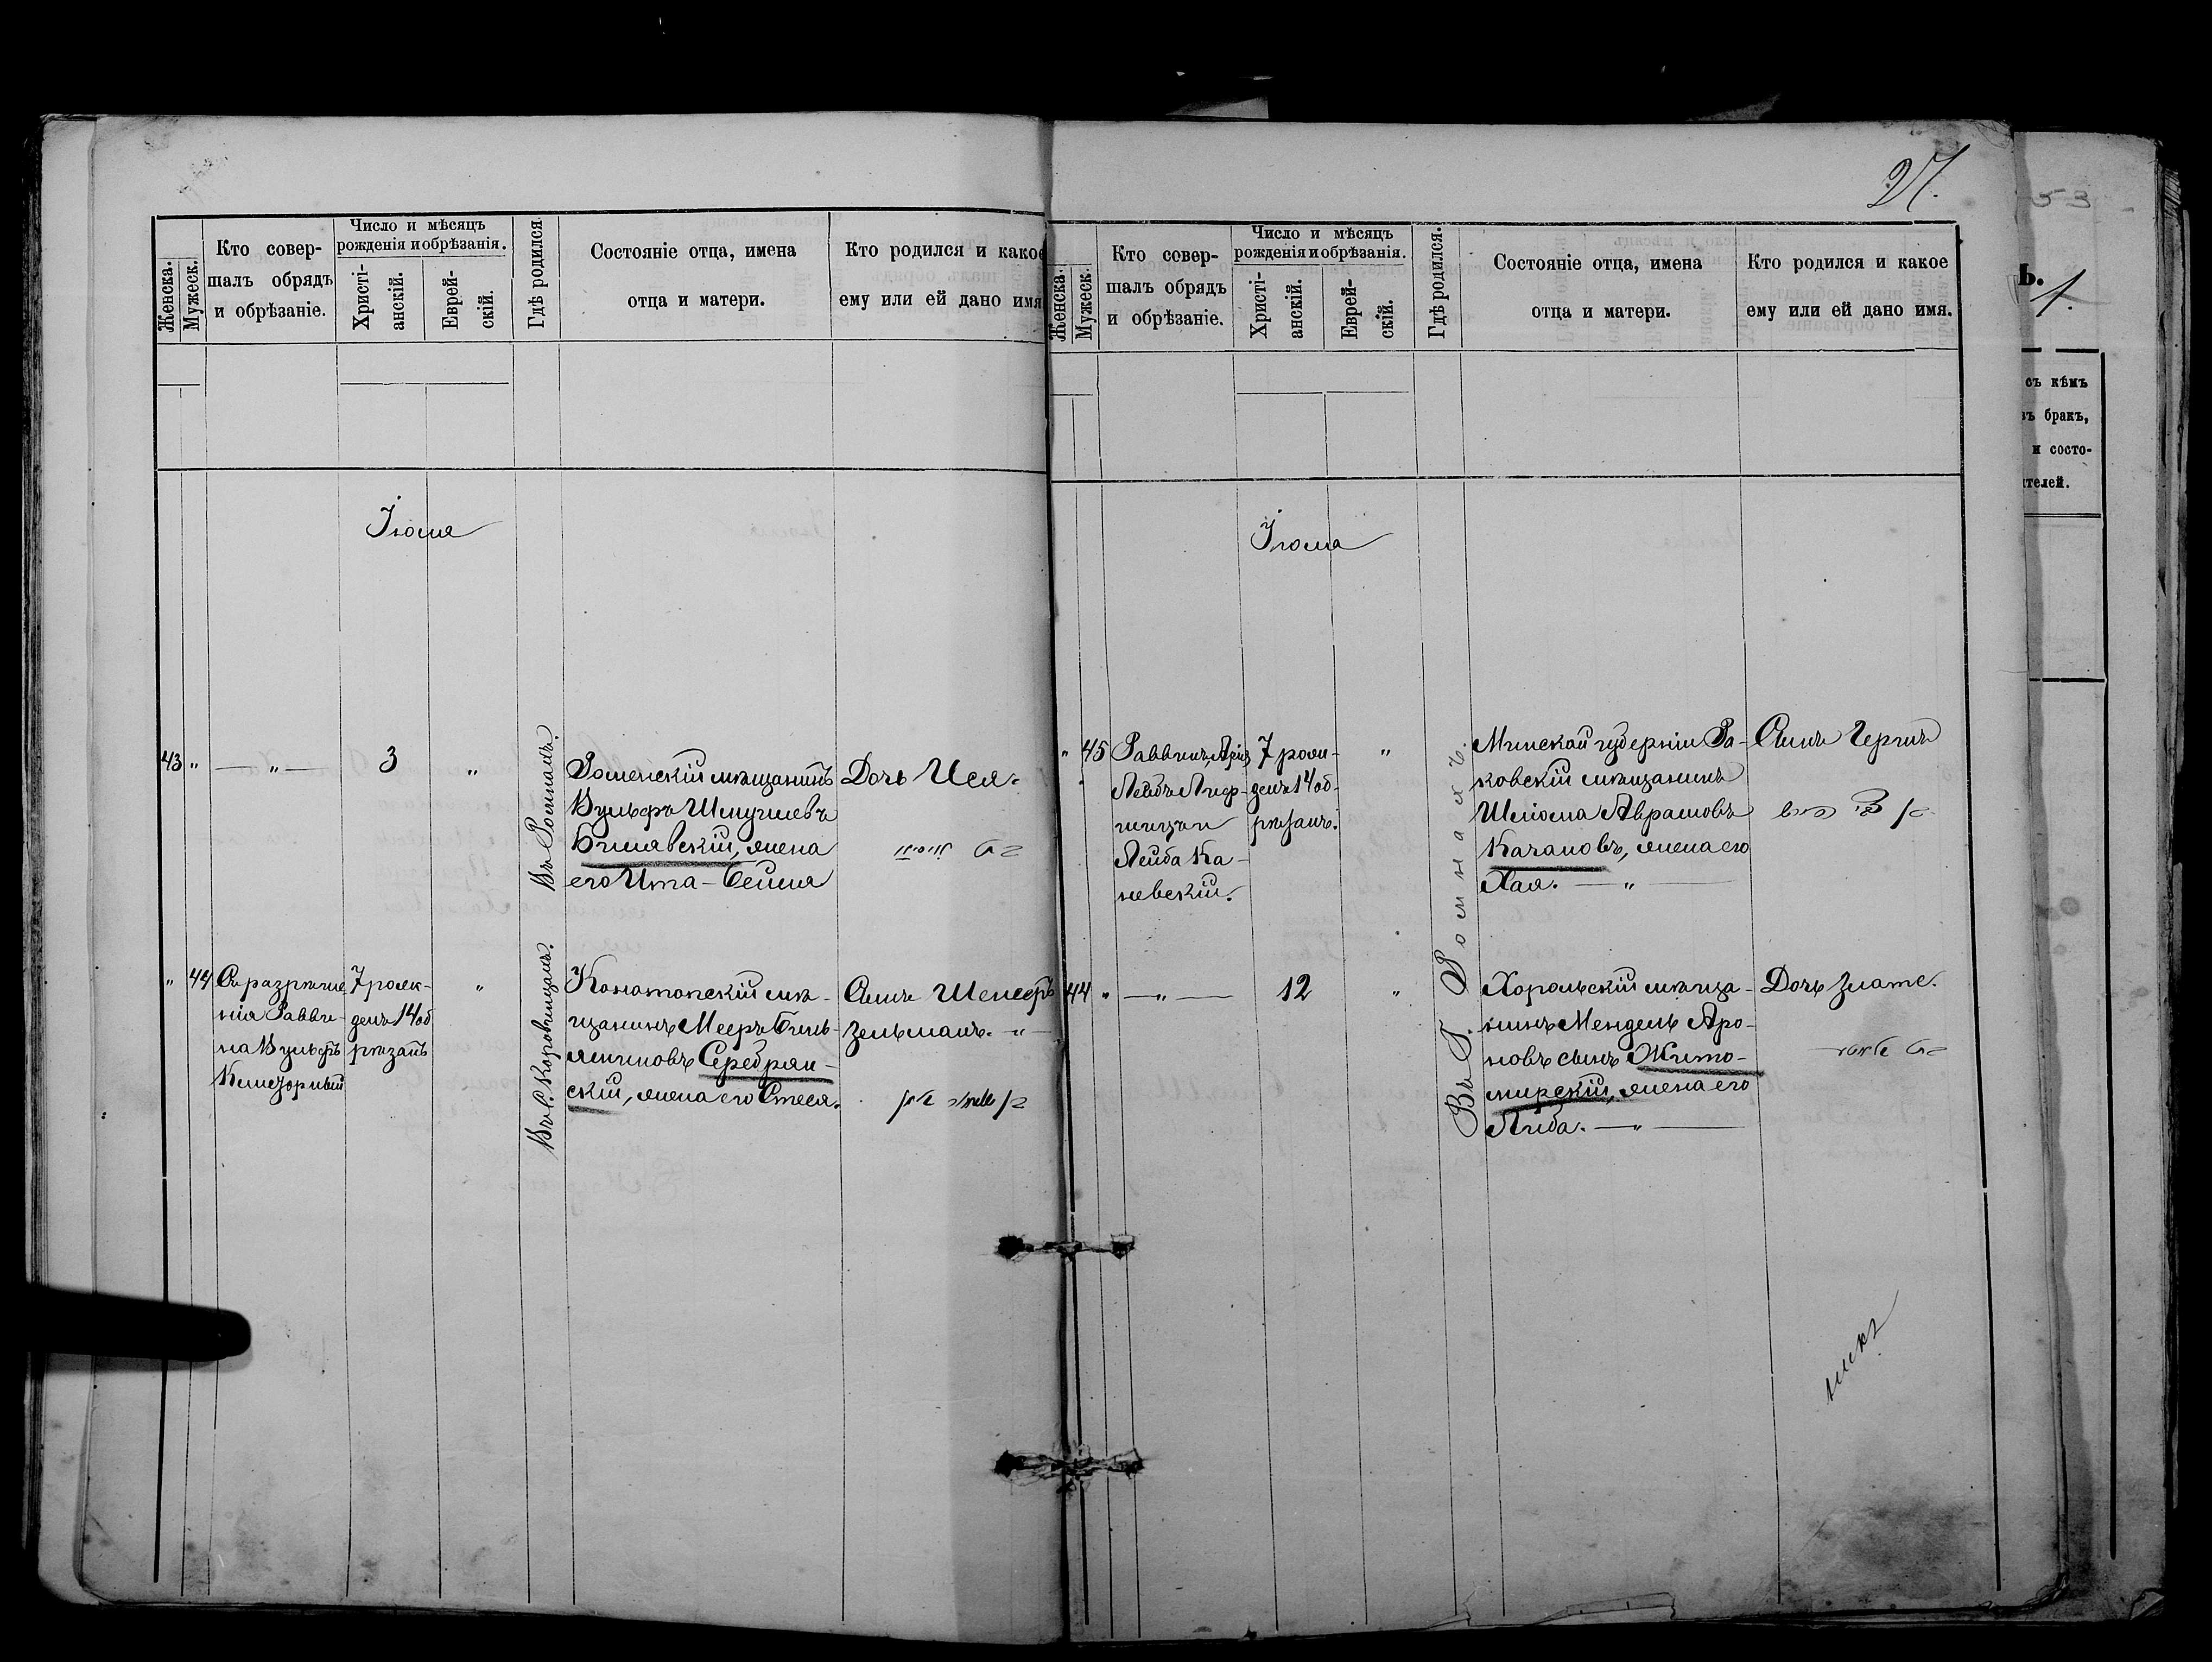 27.
53
Женска.
Мужеск.
Кто совер-
шалъ обрядъ
и обрѣзаніе.
Число и мѣсяцъ
рожденія и обрѣзанія.
Христі-
анскій.
Еврей-
скій.
Гдѣ родился.
Состояніе отца, имена
отца и матери.
Кто родился и какое
ему или ей дано имя
Іюля
43 „
— „ —
3
„
Въ Ромнахъ.
Роменскій мѣщанинъ
Вульфъ Шмуилевъ
Билявскій, жена
его Ита-Бейля
Дочь Исля.
„ 44
Съ разрѣше-
нія Равви-
на Вульфъ
7 рож-
денъ 14 об
рѣзанъ
„
Въ С. Коровинцахъ.
Конотопскій мѣ-
щанинъ Мееръ Бень-
яминовъ Серебрян-
скій, жена его Стеся.
Сынъ
Зельманъ. „ —
Женска.
Мужеск.
Кто совер-
шалъ обрядъ
и обрѣзаніе.
Число и мѣсяцъ
рожденія и обрѣзанія.
Христі-
анскій.
Еврей-
скій.
Гдѣ родился.
Состояніе отца, имена
отца и матери.
Кто родился и какое
ему или ей дано имя.
Іюля
„ 45
Раввинъ Арія
Лейбъ Лиф-
шицъ и
Лейба Ка-
невскій.
7 рож-
денъ 14 об-
рѣзанъ.
„
Въ Г. Ромнахъ.
Минской губерніи Ра-
ковскій мѣщанинъ
Шліома Абрамовъ
Качановъ, жена его
Хая. — „ —
Сынъ Герцъ
44 „
— „ —
12
„
Хорольскій мѣща-
нинъ Мендель Аро-
новъ сынъ Жито-
мирскій, жена его
Либа. — „ —
Дочь Злате.
Ь.
1.
съ кѣмъ
въ бракъ,
и состо-
ителей.